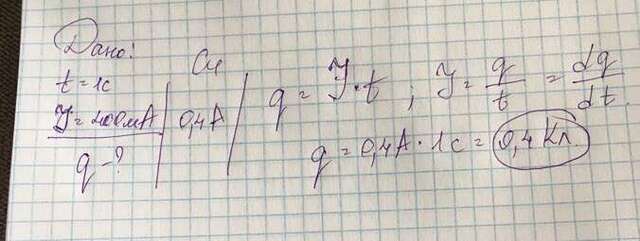 Дано:
t = 1с
J = 400мА
q - ?
Си
0,4А
q = J · t ; J = q/t = dq/dt
q = 0,4А · 1с = 0,4 Кл.